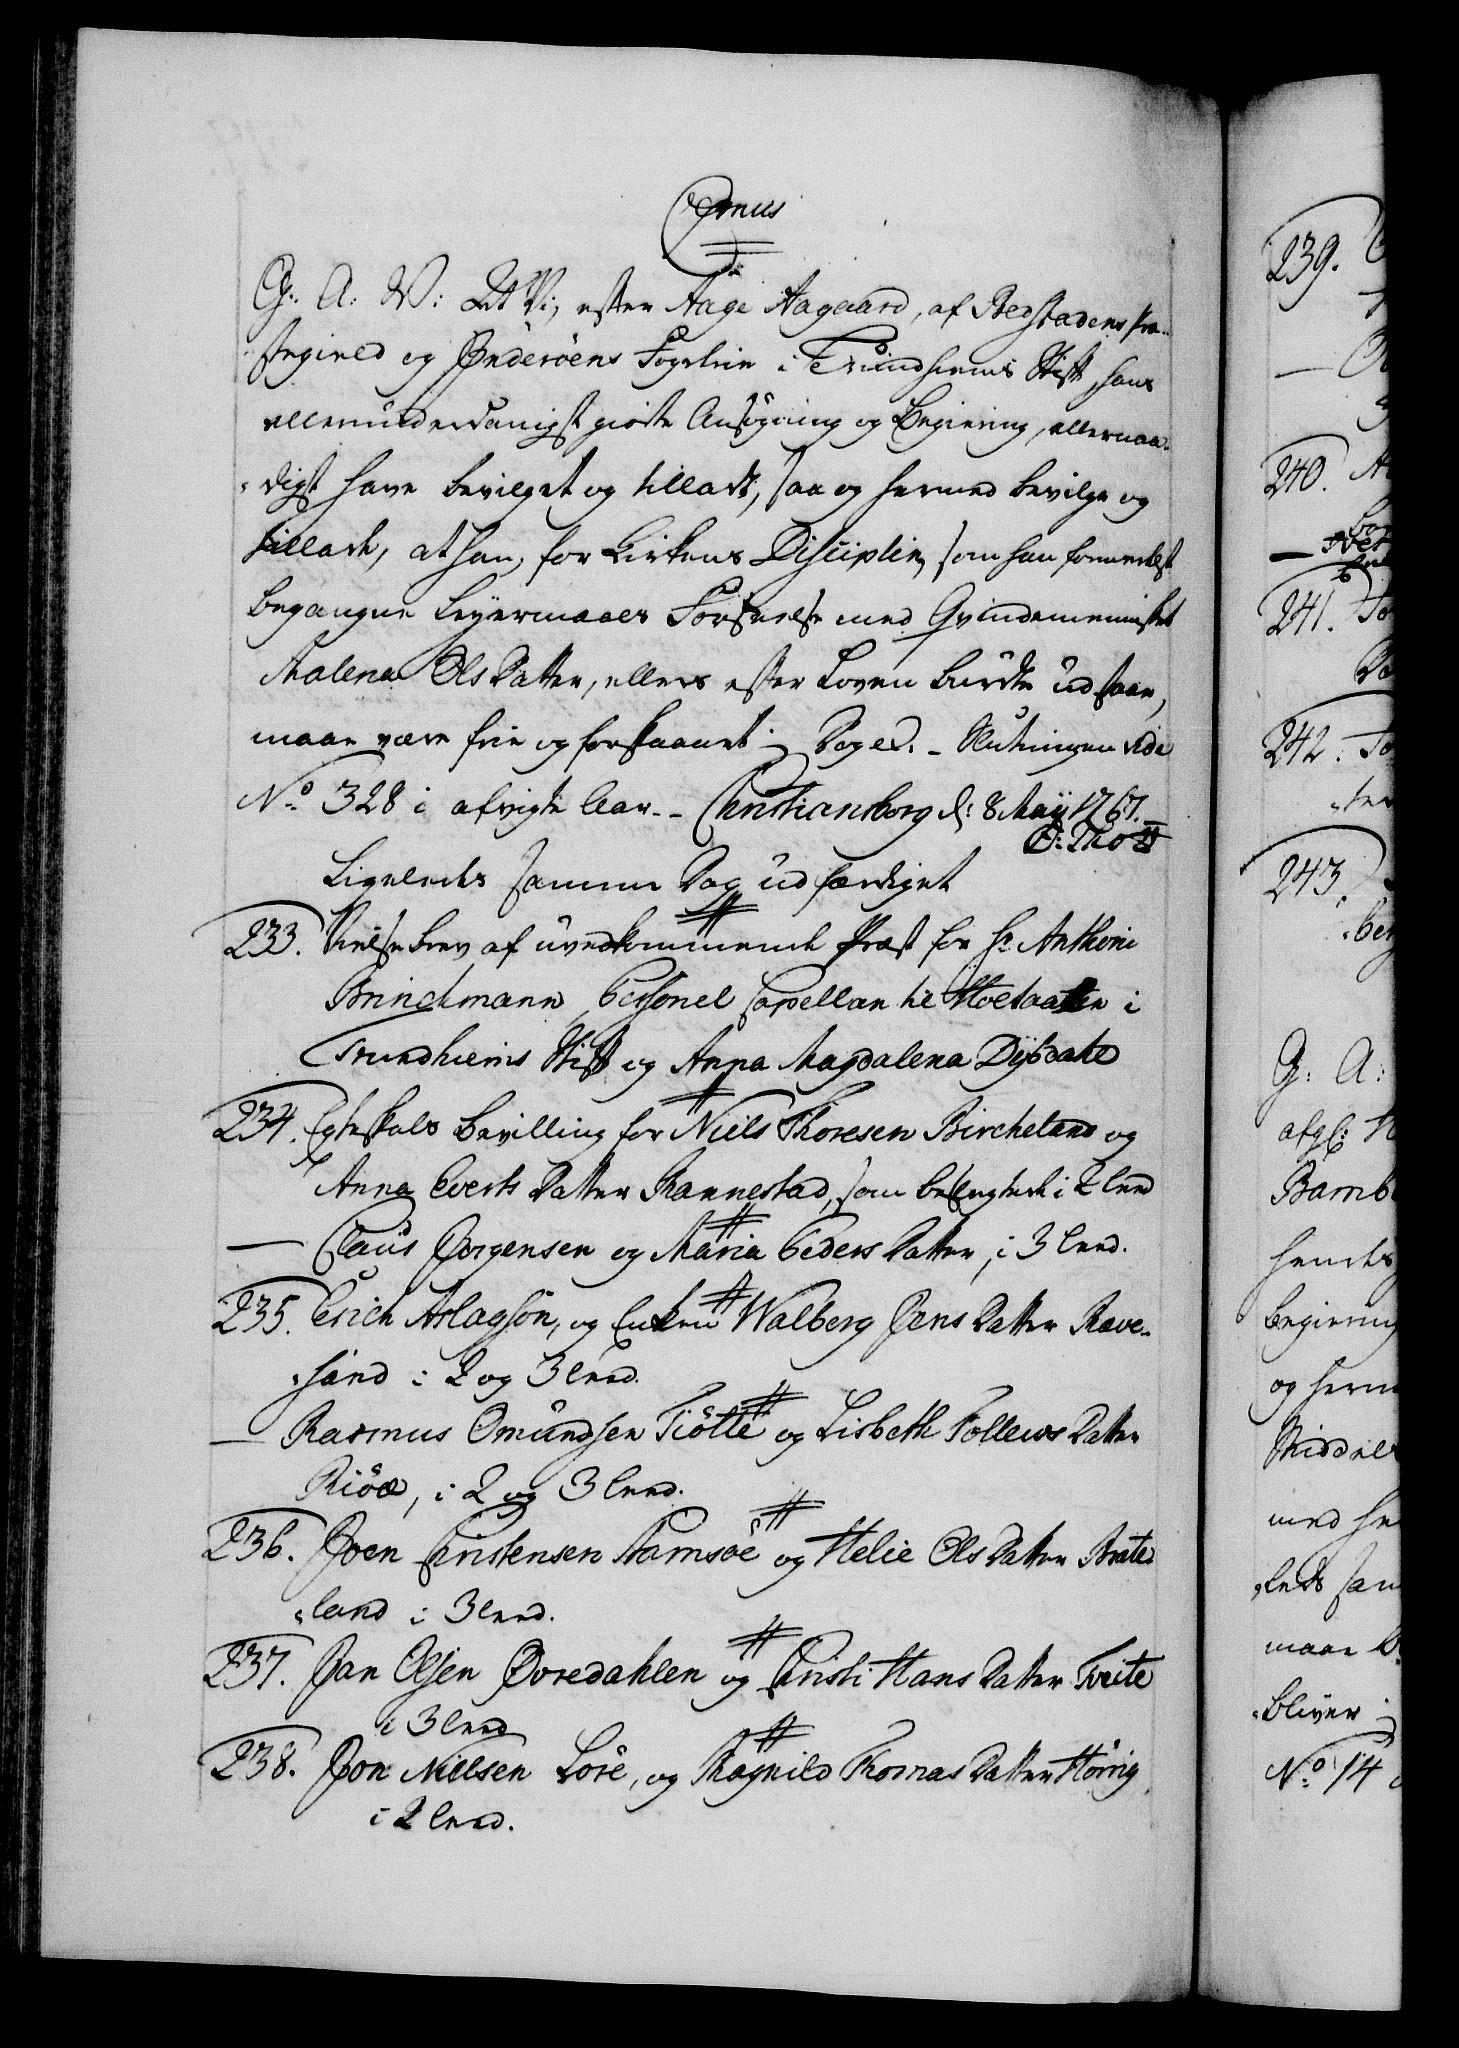 C 7mus
G: A: V: At Vi, efter Aage Aagaard, af Bedstadens Præ-
stegield og Inderöens Fogderie i Trundhiems Stift, hans
allerunderdanigst giorte Ansögning og Begiering, allernaa-
digst have bevilget og tilladt, saa og hermed bevilge og
tillade, at han, for Kirkens Disciplin, som han formedelst
begangne Leyermaals Forseelse med Qvindemennisket
Malena Ols Datter, ellers efter Loven burde udstaae,
maae være frie og forskaanet ; Dog &c. - Slutningen vide
No 328 i afvigte Aar. - Christiansborg d: 8 Maij 1767.
O: Thott
Ligeledes samme Dag udfærdiget
233. Vielse brev af uvedkommende Præst for Hr Anthoni
Brinchmann, Personel Capellan til Stoetaaten i
Trundhiems Stift og Anna Magdalena Dybdahl
234. Egteskabs Bevilling for Niels Thoresen Bircheland og
Anna Everts Datter Rannestad, som beslegtede i 2 Leed
— Claus Jörgensen og Maria Peders Datter, i 3 Leed.
235. Erich Aslagsön, og Enken Walberg Jens Datter Ræve-
sand i 2 og 3 Leed.
— Rasmus Omundsen Tiötte og Lisbeth Tollevs Datter
Riöe, i 2 og 3 Leed.
236. Joen Christensen Stamsöe og Helie Ols Datter Brate-
land i 3 Leed.
237. Jan Olsen Övredahlen og Christi Hans Datter Tveite
i 3 Leed
238. Jon Nielsen Löre, og Ragnild Thomas Datter Hörrig
i 2 Leed.
239.
240.
241.
242.
243.
G: A:
afg:
Bamb
hendes
begiering
og herm
Middel
med he
leds sam
maae
bliver
No 14